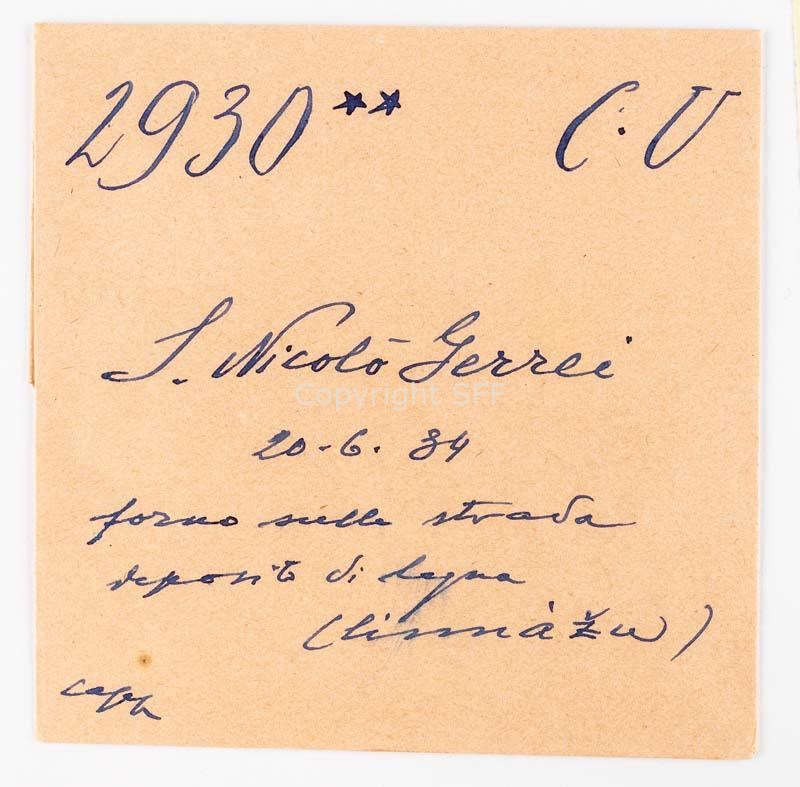 2930** C.V
S. Nicolò Gerrei
Copyright SFF
20-6. 34
forno sulla strada
deposito di legna
(linnàžu)